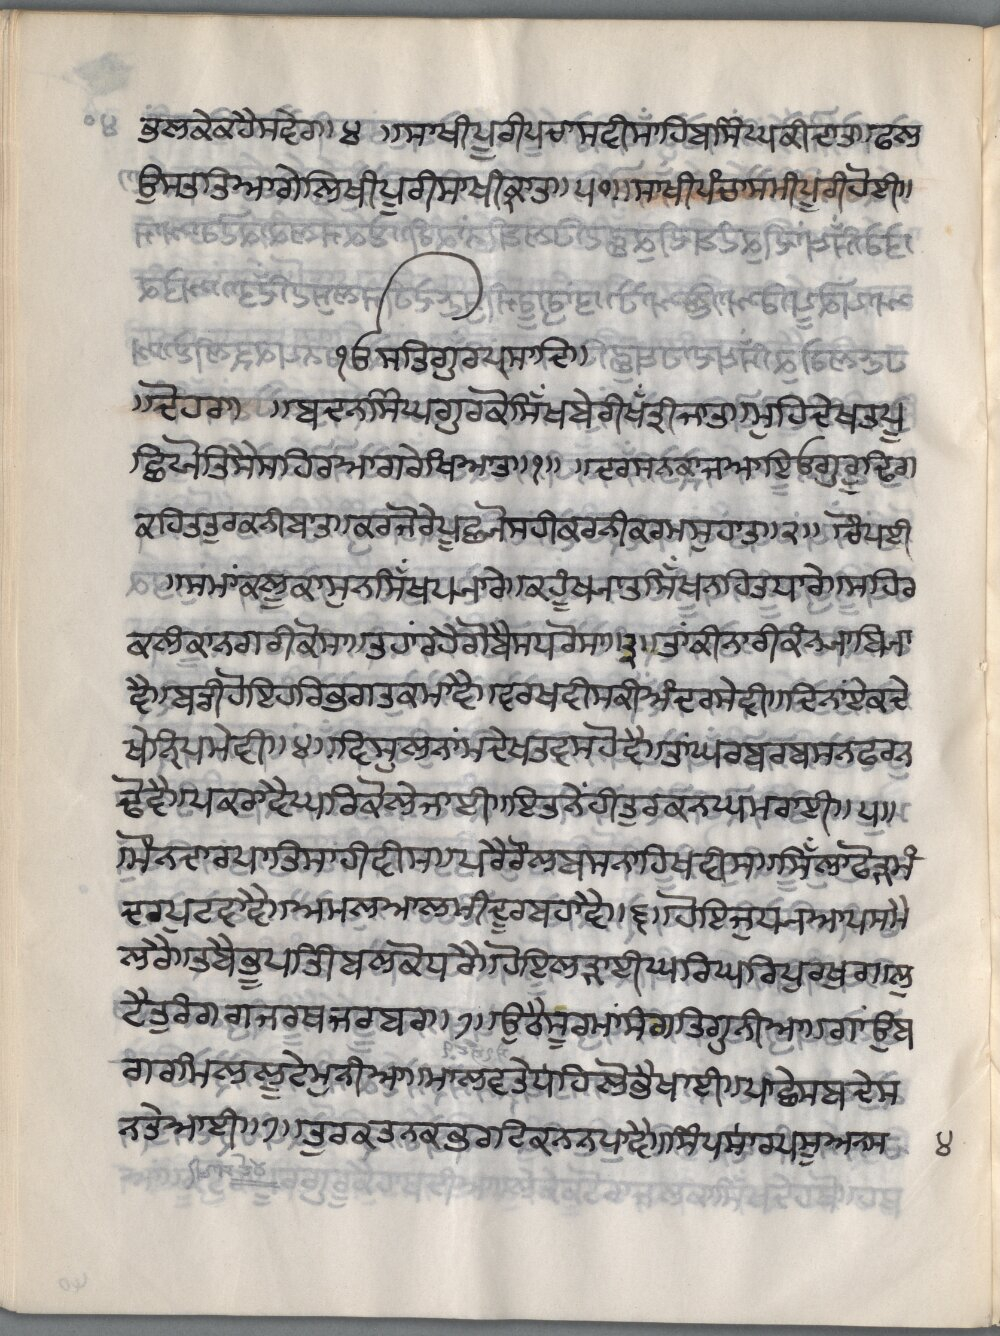 ਭੁਲਕੇਕਹੈਸਦੇਗ॥੪ ॥ਸਾਖੀਪੂਰੀਪਚਾਸਵੀਸਾਹਿਬਸਿੰਘਕੀਦਾਤ॥ਫਲ
ਉਸਤਤਿਆਗੇਲਿਖੀਪੂਰੀਸਾਖੀਕਾਤ॥੫੧॥ਸਾਖੀਪੰਚਾਸਮੀਪੂਰੀਹੋਈ॥
ੴਸਤਿਗੁਰਪ੍ਰਸਾਦਿ॥
॥ਦੋਹਰਾ ॥ਬਚਨਸਿੰਘਗੁਰਕੋਸਿੱਖਬੇਰੀਖੱਤ੍ਰੀਜਾਤ॥ਮੁਹਿਦੇਖਤਪੂ
ਛਿਯੋਤਿਸੈਸਾਹਿਰਆਗਰੇਖਿਆਤ॥੧॥ ॥ਦਰਸਨਕਾਜਆਇਓਗੁਰੂਢਿਗ
ਕਹਿਤਤੁਰਕਨੀਬਾਤ॥ਕਰਜੋਰੇਪੂਛਨੋਸਹੀਕਰਨੀਕਰਮਸੁਹਾਤ॥੨॥ ਚੌਪਈ
॥ਸਮਾਂਕਲੂਕਾਸੁਨਸਿੱਖਪਜਾਰੇ॥ਕਹੂੰਖਜਾਤਸਿੱਖੂਨਹਿਤੁਧਾਰੇ॥ਸਹਿਰ
ਕਲੀਕਾਨਗਰੀਕੋਸਾ॥ਤਹਾਂਰਹੈਗੋਬੈਸਪਰੋਸਾ॥੩॥ਤਾਂਕੀਨਾਰੀਕੰਨਜਾਬਿਜਾ
ਵੈ॥ਬਡੀਹੋਇਹਰਿਭਗਤਕਮਾਵੈ॥ਵਰਖਵੀਸਕੀਅੰਦਰਸੇਵੀ॥ਦਿਨਏਕਦੇ
ਖੇਨ੍ਰਿਪਸੇਵੀ॥੪॥ਦ੍ਵਿਸੁਲਤਾਂਮਦੇਖਤਵਸਹੋਵੈ॥ਤਾਂਘਰਬਰਬਸਨਫਰਨ
ਢੋਵੈ॥ਪਕਰਾਵੈਘਰਿਕੋਲੇਜਾਈ॥ਇਤਨੇਂਹੀਤੁਰਕਨਘਮਰਾਈ॥੫॥
ਸੈਨਦਾਰਪਾਤਿਸਾਹੀਵੀਸ॥ਪਰੈਰੌਲਬਸਨਾਹਿਖਵੀਸ॥ਸਿੱਲਾਫੋੜਮੰ
ਦਰਪੁਟਵਾਵੈ॥ਅਮਲਆਲਮੀਦੂਰਬਹਾਵੈ॥੬॥ਹੋਇਜੁਧਜਆਪਸਮੈ
ਲਰੈ॥ਤਬੈਭੂਪਤਿਬਲਕੋਧਰੈ॥ਹੋਇਲੜਾਈਘਰਿਘਰਿਪੁਰਖੁਰਾ॥ਲੂ
ਟੈਤੁਰੰਗਗਜਰਥਜਰਬਰਾ॥੭॥ਉਠੈਸੂਰਮਾਂਸੰਗਤਿਗੁਨੀਆ॥ਰਾਂਉਬ
ਗਰੀਮਲਲੂਟੇਮੁਨੀਆ॥ਮਾਲਵਤੇਪਹਿਲੋਭੈਖਾਈ॥ਪਾਛੇਸਬਦੇਸ
ਨਤੇਆਈ॥੭॥ਤੁਰਕਤਨਕਭਗਟਿਕਨਨਪਾਵੈ॥ਸੰਪਸਾਰਪਸੂਅਨਸ ੪